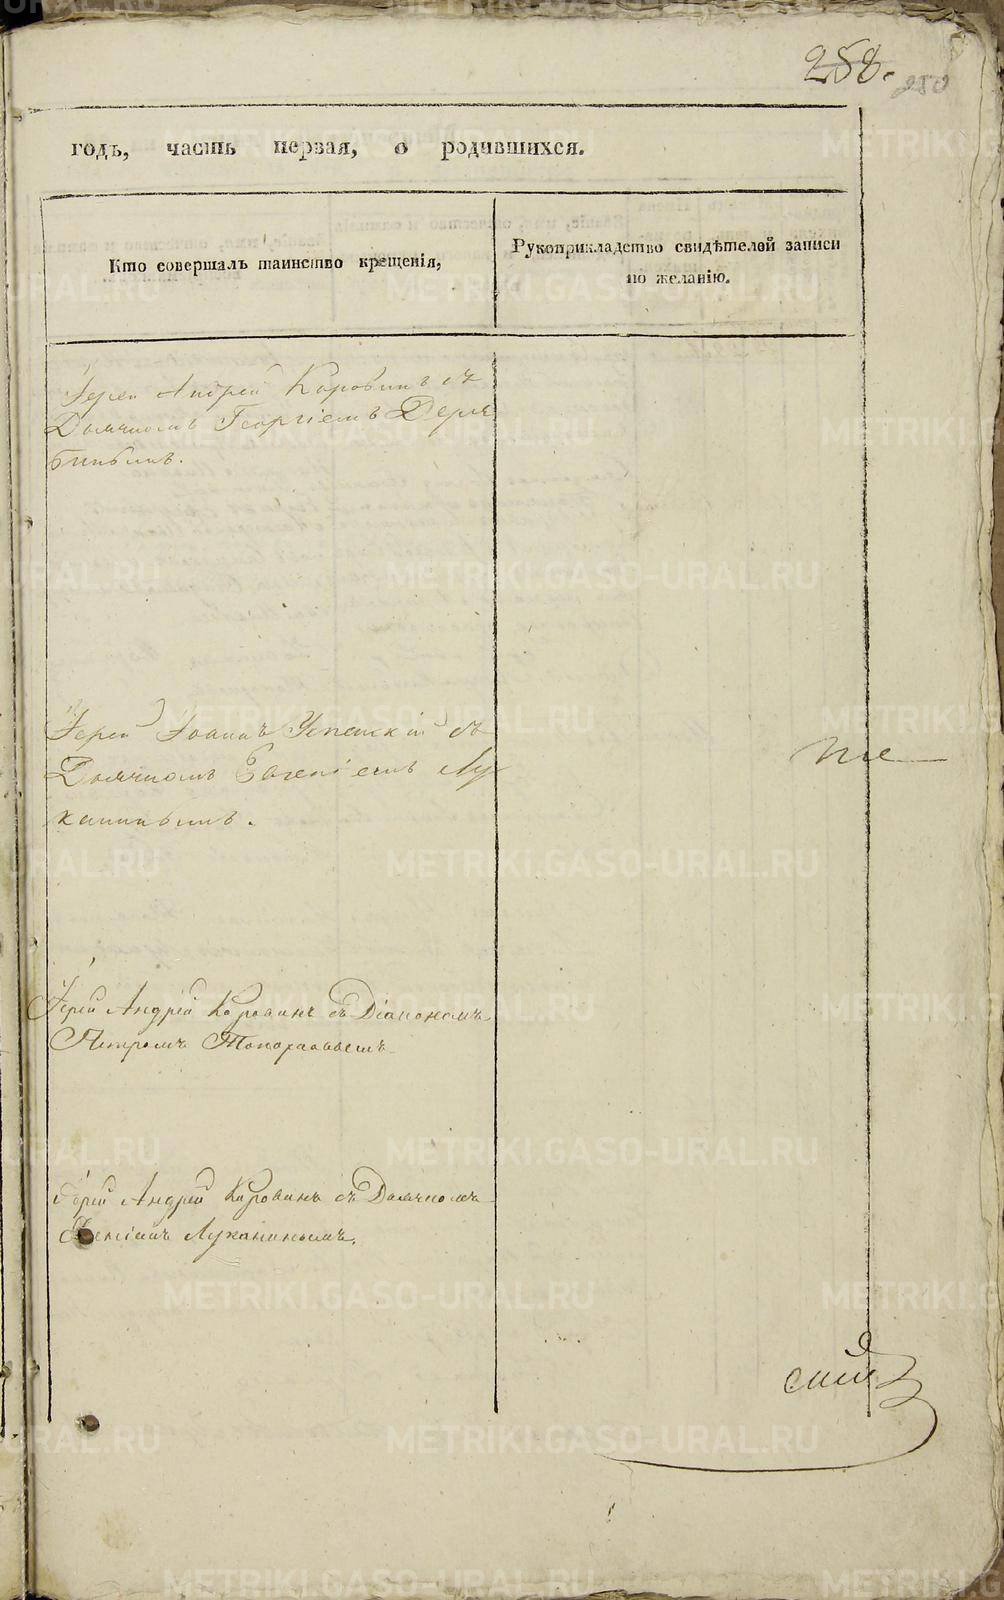 258.
250
годъ, часть первая, о родившихся.
Кто совершалъ таинство крещенія,
Рукоприкладство свидѣтелей записи
по желанію.
Іерей Андрей Коровинъ съ
Дьячкомъ Георгіемъ Деря
бинымъ.
Іерей Іоаннъ Успенскій съ
Дьячкомъ Евгеніемъ Лу
канинымъ.
Іерей Андрей Коровинъ съ Діакономъ
Петромъ Топорковымъ
Іерей Андрей Коровинъ съ Дьячкомъ
Луканинымъ.
METRIKI.GASO-URAL.RU